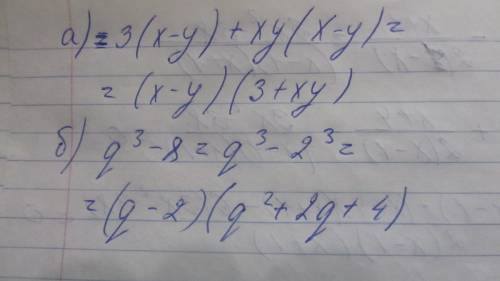 а) = 3(x-y) + xy(x-y) =
= (x-y)(3+xy)
б) q³-8 = q³-2³ =
= (q-2)(q²+2q+4)